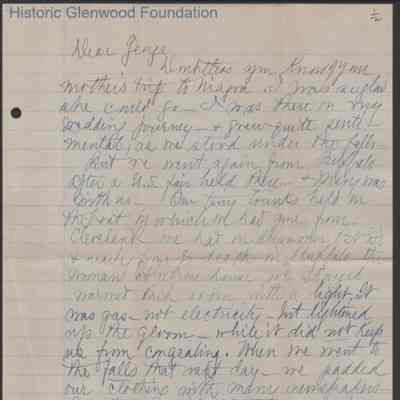 Historic Glenwood Foundation
1/2
Dear George,
Doubtless you know of your
mother's trip to Niagra. I was so glad
she could go — I was there on my
wedding journey — & grew quite senti-
mental, as we stood under the falls.
But we went again from Buffalo
after a U.S. fair held there — & Mary was
with us — Our tiny
the boat by which we had come from
Cleveland
& nearly froze to death in Buffalo the
woman at whose house we stayed
each room with a light, It
was gas — not electricity — but lightened
up the gloom — while it did not keep
us from congealing. When we went to
the falls that next day — we padded
our clothing with many newspapers